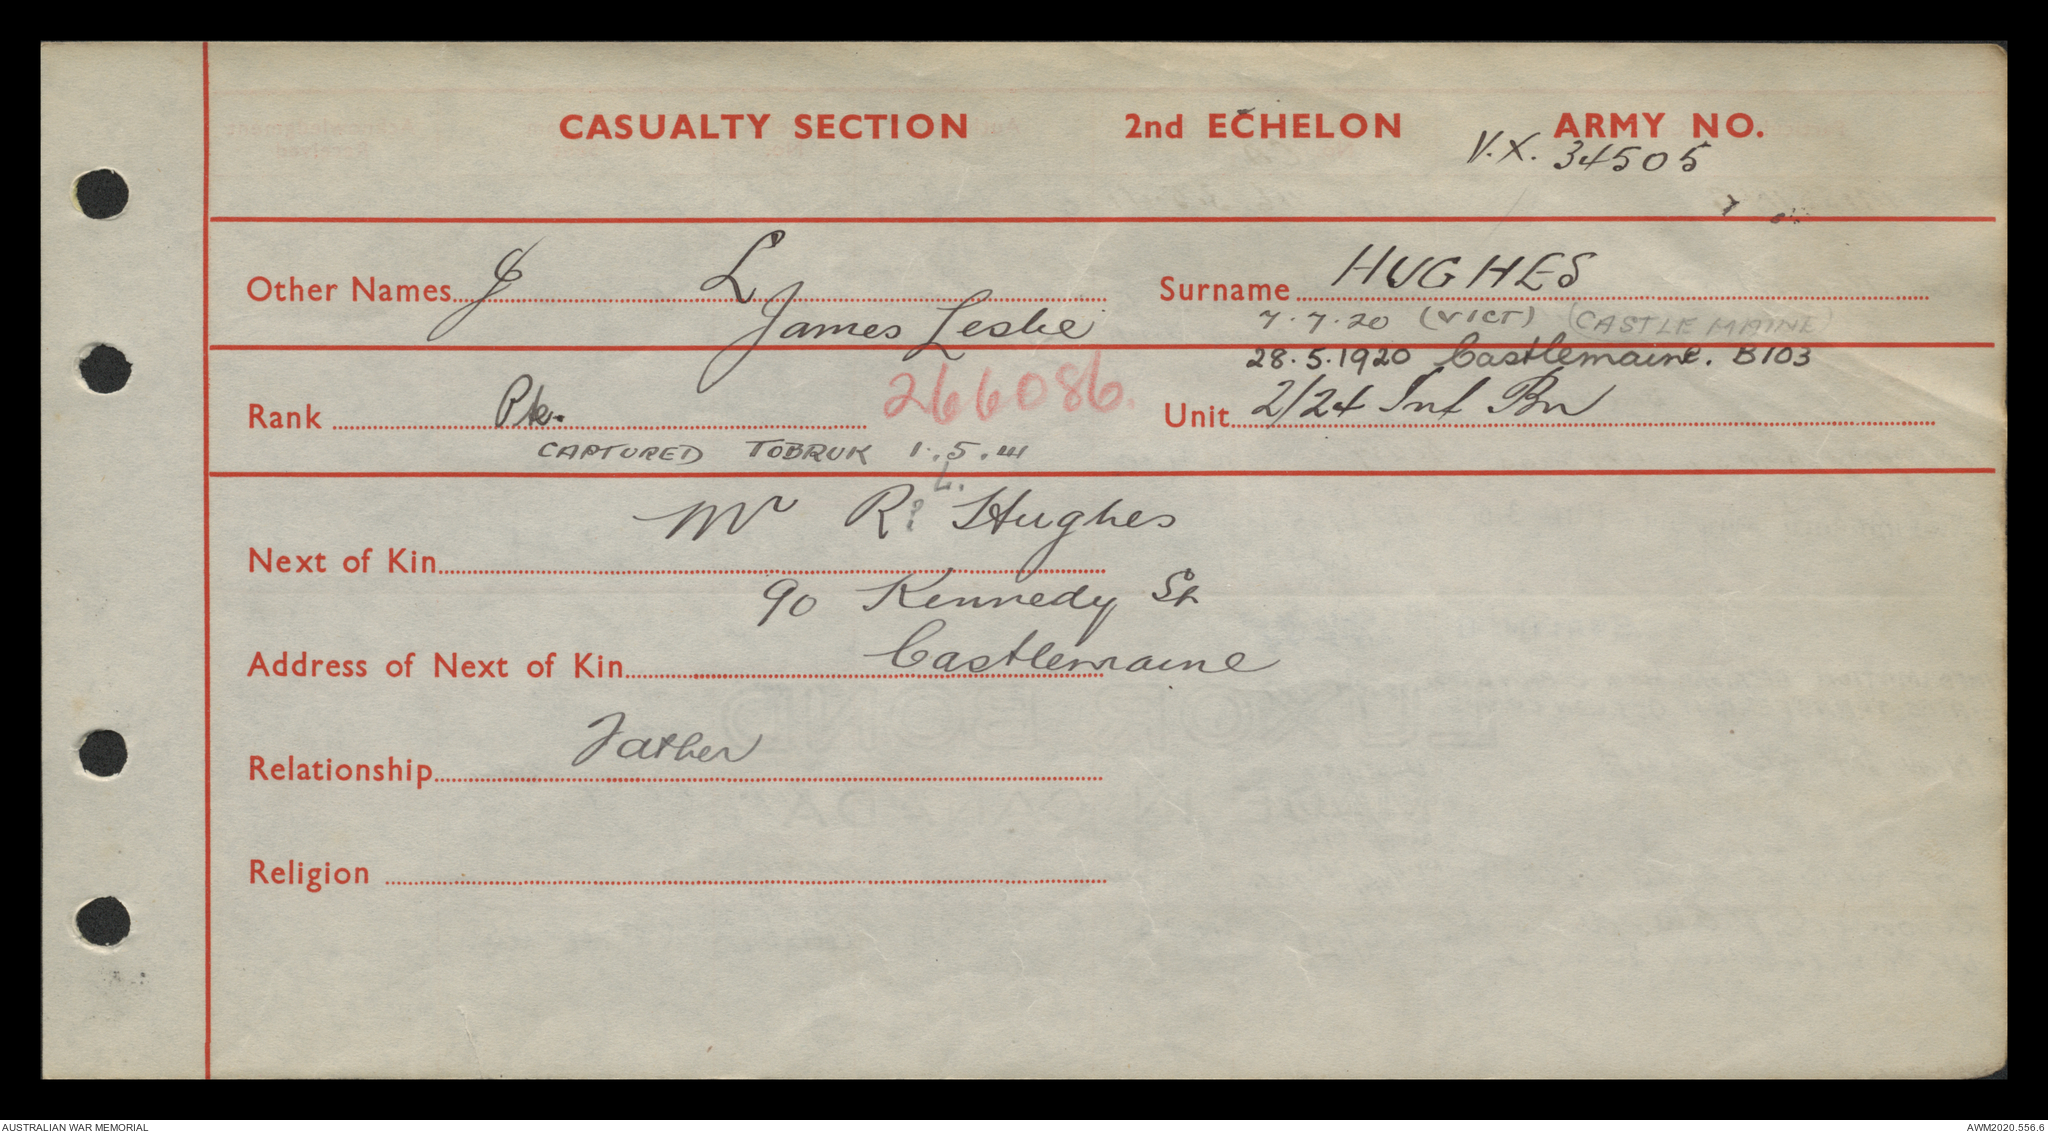 CASUALTY SECTION 2nd ECHELON ARMY NO.
V.X. 34505
Other Names J L Surname HUGHES
James Leslie 7.7.20 (VICT) (CASTLEMAINE)
28.5.1920 Castlemaine. B103
Rank Pte. 266086. Unit 2/24 Inf Bn
CAPTURED TOBRUK 1.5.41
L.
Mr R. Hughes
Next of Kin
90 Kennedy St
Address of Next of Kin Castlemaine
Relationship Father
Religion
AUSTRALIAN WAR MEMORIAL AWM2020.556.6